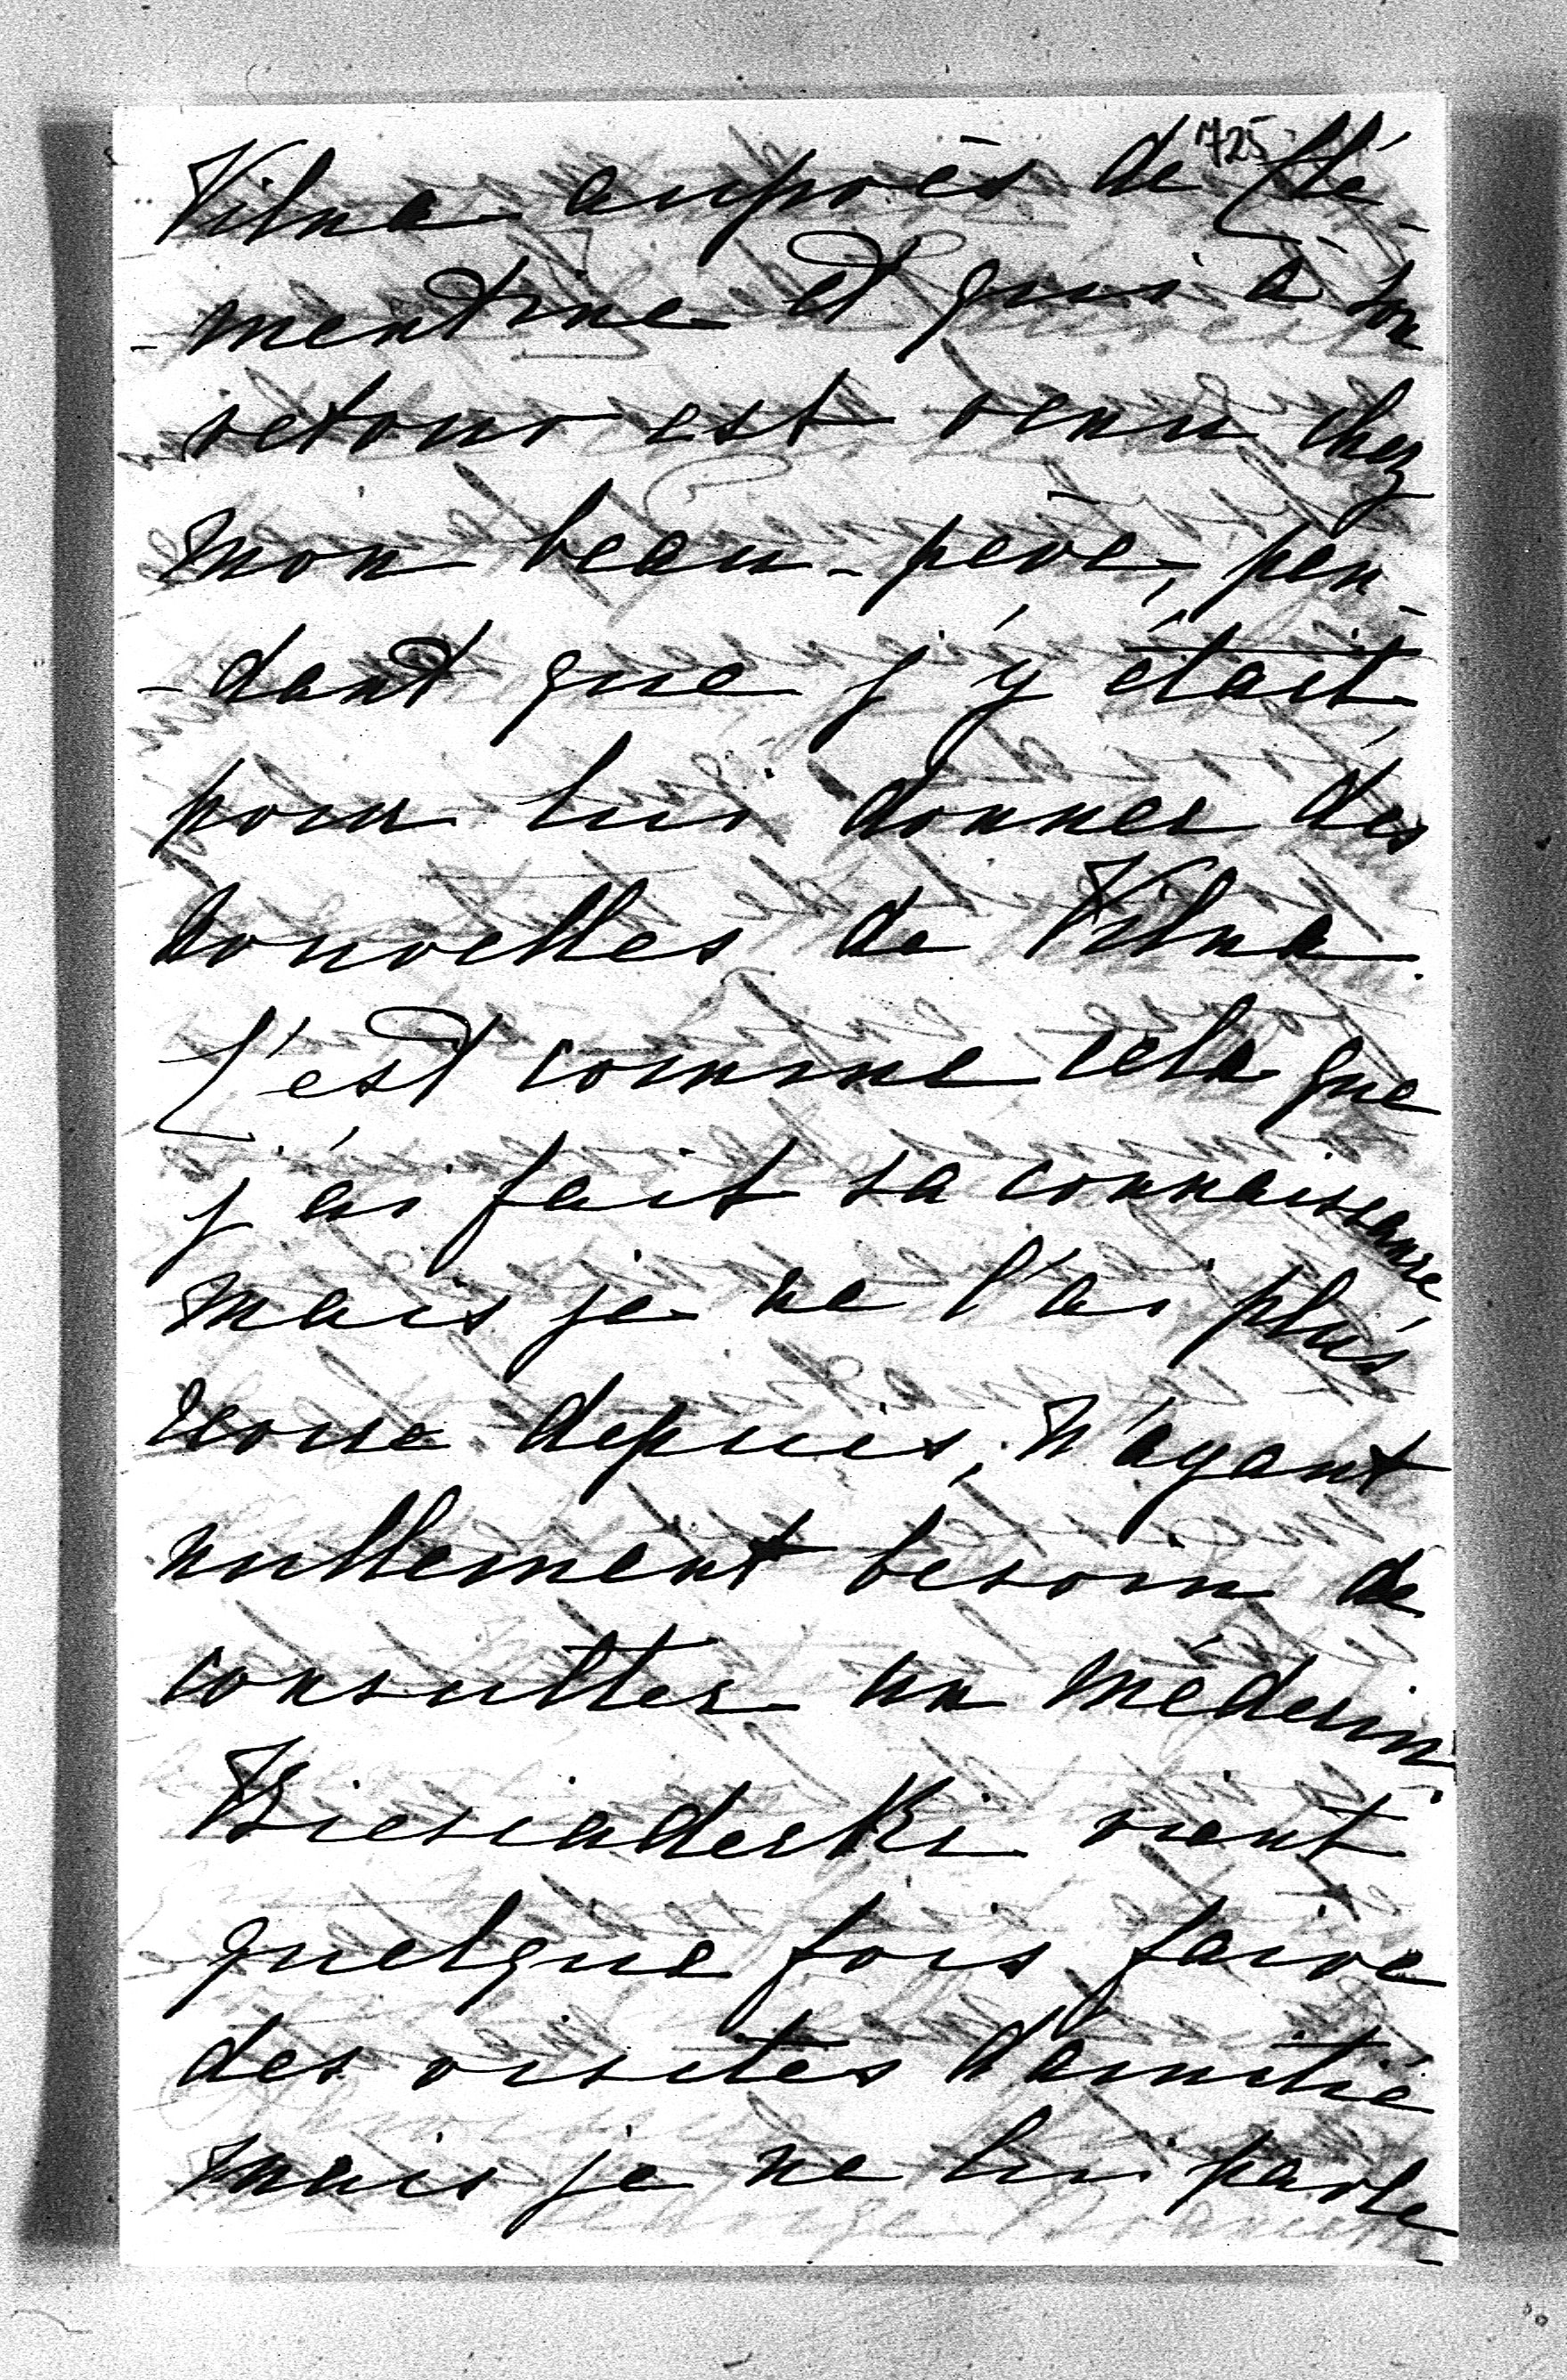 725
Vilna auprès de Clé-
-mentine et qui à son
retour est venu chez
mon beau-père, pen-
-dant que j'y était,
pour lui donner des
nouvelles de Vilna.
C'est comme cela que
j'ai fait sa connaissance,
mais je ne l'ai plus
revue depuis, n'ayant
nullement besoin de
consulter un médecin.
Biesiaderki vient
quelque fois faire
des visites d'amitié
mais je ne lui parle